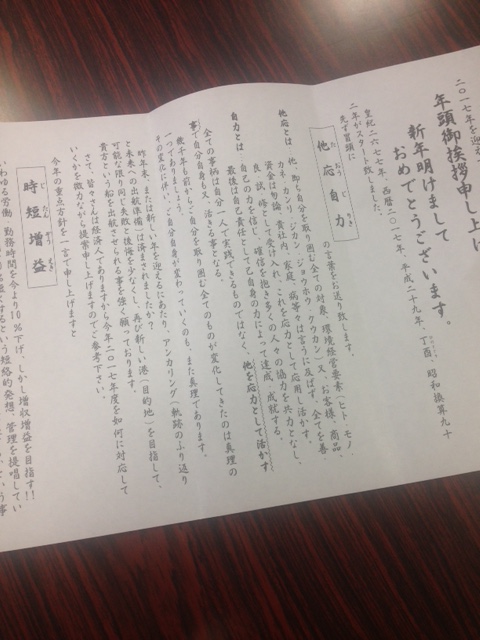 二〇一七年を迎え
年頭御挨拶申し上げ
新年明けまして
おめでとうございます。
皇紀二六七七年、西暦二〇一七年、平成二十九年、丁酉、昭和換算九十
二年がスタート致しました。
先ず冒頭に
他応自力
たおうじりき
の言葉をお送り致します。
他応とは、他、即ち自分を取り囲む全ての対象、環境経営要素(ヒト・モノ・
カネ・カンリ・ジカン・ジョウホウ・クウカン)又、お客様、商品、
資金は勿論、貴社内、家庭、病等々は言うに及ばず、全てを善
良・試・修として受け入れ、それを応力として応用し活かす。
自力とは…自己の力を信じ、確信を抱き多くの人々の協力を共力となし、
最後は自己責任として己自身の力によって達成、成就する。
全ての事柄は自分一人で実践できるものではなく、他を応力として活かす
事で自分自身も又、活きる事となる。
幾十年も前から、ご自分を取り囲む全てのものが変化してきたのは真理の
一つでありましょう。
その変化に伴い、ご自分自身が変わっていくのも、また真理であります。
昨年末、または新しい年を迎えるにあたり、アンカリング(軌跡のふり返り
と未来への出航準備)は済まされましたか?
可能な限り同じ失敗と後悔を少なくし、再び新しい港(目的地)を目指して、
貴方という船を出航させられる事を強く願っております。
さて、皆々さんは経済人でありますから今年二〇一七年度を如何に対応して
いくかを微力ながら提案申し上げますのでご参考下さい。
今年の重点方針を一言で申し上げますと
時短増益
じたんぞうえき
いわゆる労働、勤務時間を今より10%下げ、しかし増収増益を目指す!!
するという短絡的発想、管理を提唱してい